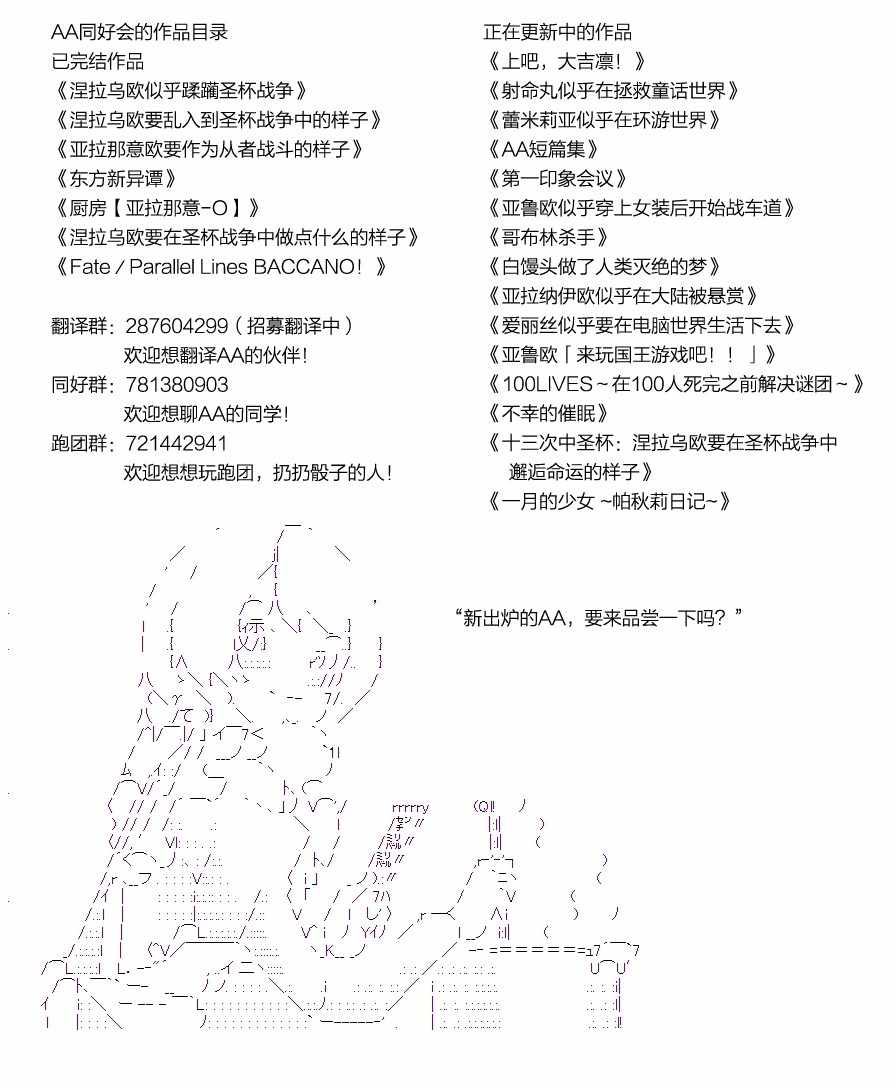 AA同好会的作品目录
已完结作品
《涅拉乌欧似乎蹂躏圣杯战争》
《涅拉乌欧要乱入到圣杯战争中的样子》
《亚拉那意欧要作为从者战斗的样子》
《东方新异谭》
《厨房【亚拉那意-O】》
《涅拉乌欧要在圣杯战争中做点什么的样子》
《Fate / Parallel Lines BACCANO！》
翻译群：287604299（招募翻译中）
欢迎想翻译AA的伙伴！
同好群：781380903
欢迎想聊AA的同学！
跑团群：721442941
欢迎想想玩跑团，扔扔骰子的人！
正在更新中的作品
《上吧，大吉凛！》
《射命丸似乎在拯救童话世界》
《蕾米莉亚似乎在环游世界》
《AA短篇集》
《第一印象会议》
《亚鲁欧似乎穿上女装后开始战车道》
《哥布林杀手》
《白馒头做了人类灭绝的梦》
《亚拉纳伊欧似乎在大陆被悬赏》
《爱丽丝似乎要在电脑世界生活下去》
《亚鲁欧「来玩国王游戏吧！！」》
《100LIVES～在100人死完之前解决谜团～》
《不幸的催眠》
《十三次中圣杯：涅拉乌欧要在圣杯战争中
邂逅命运的样子》
《一月的少女 ~帕秋莉日记~》
“新出炉的AA，要来品尝一下吗？”